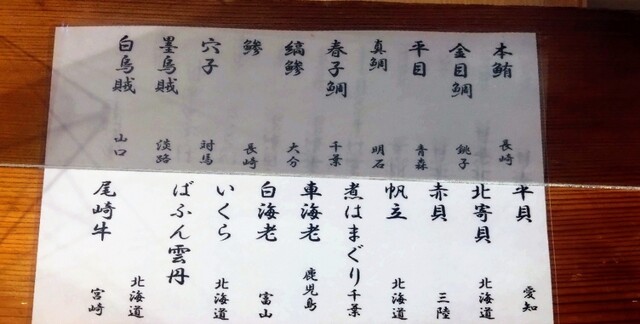 本鮪 長崎
金目鯛 銚子
平目 青森
真鯛 明石
春子鯛 千葉
縞鯵 大分
鯵 長崎
穴子 対馬
墨烏賊 淡路
白烏賊 山口
平貝 愛知
北寄貝 北海道
赤貝 三陸
帆立 北海道
煮はまぐり 千葉
車海老 鹿児島
白海老 富山
いくら 北海道
ばふん雲丹 北海道
尾崎牛 宮崎